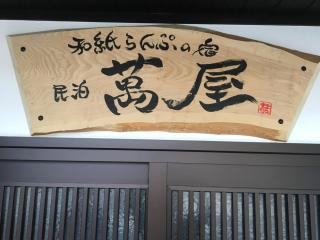 和紙らんぷの宿
民泊 萬屋